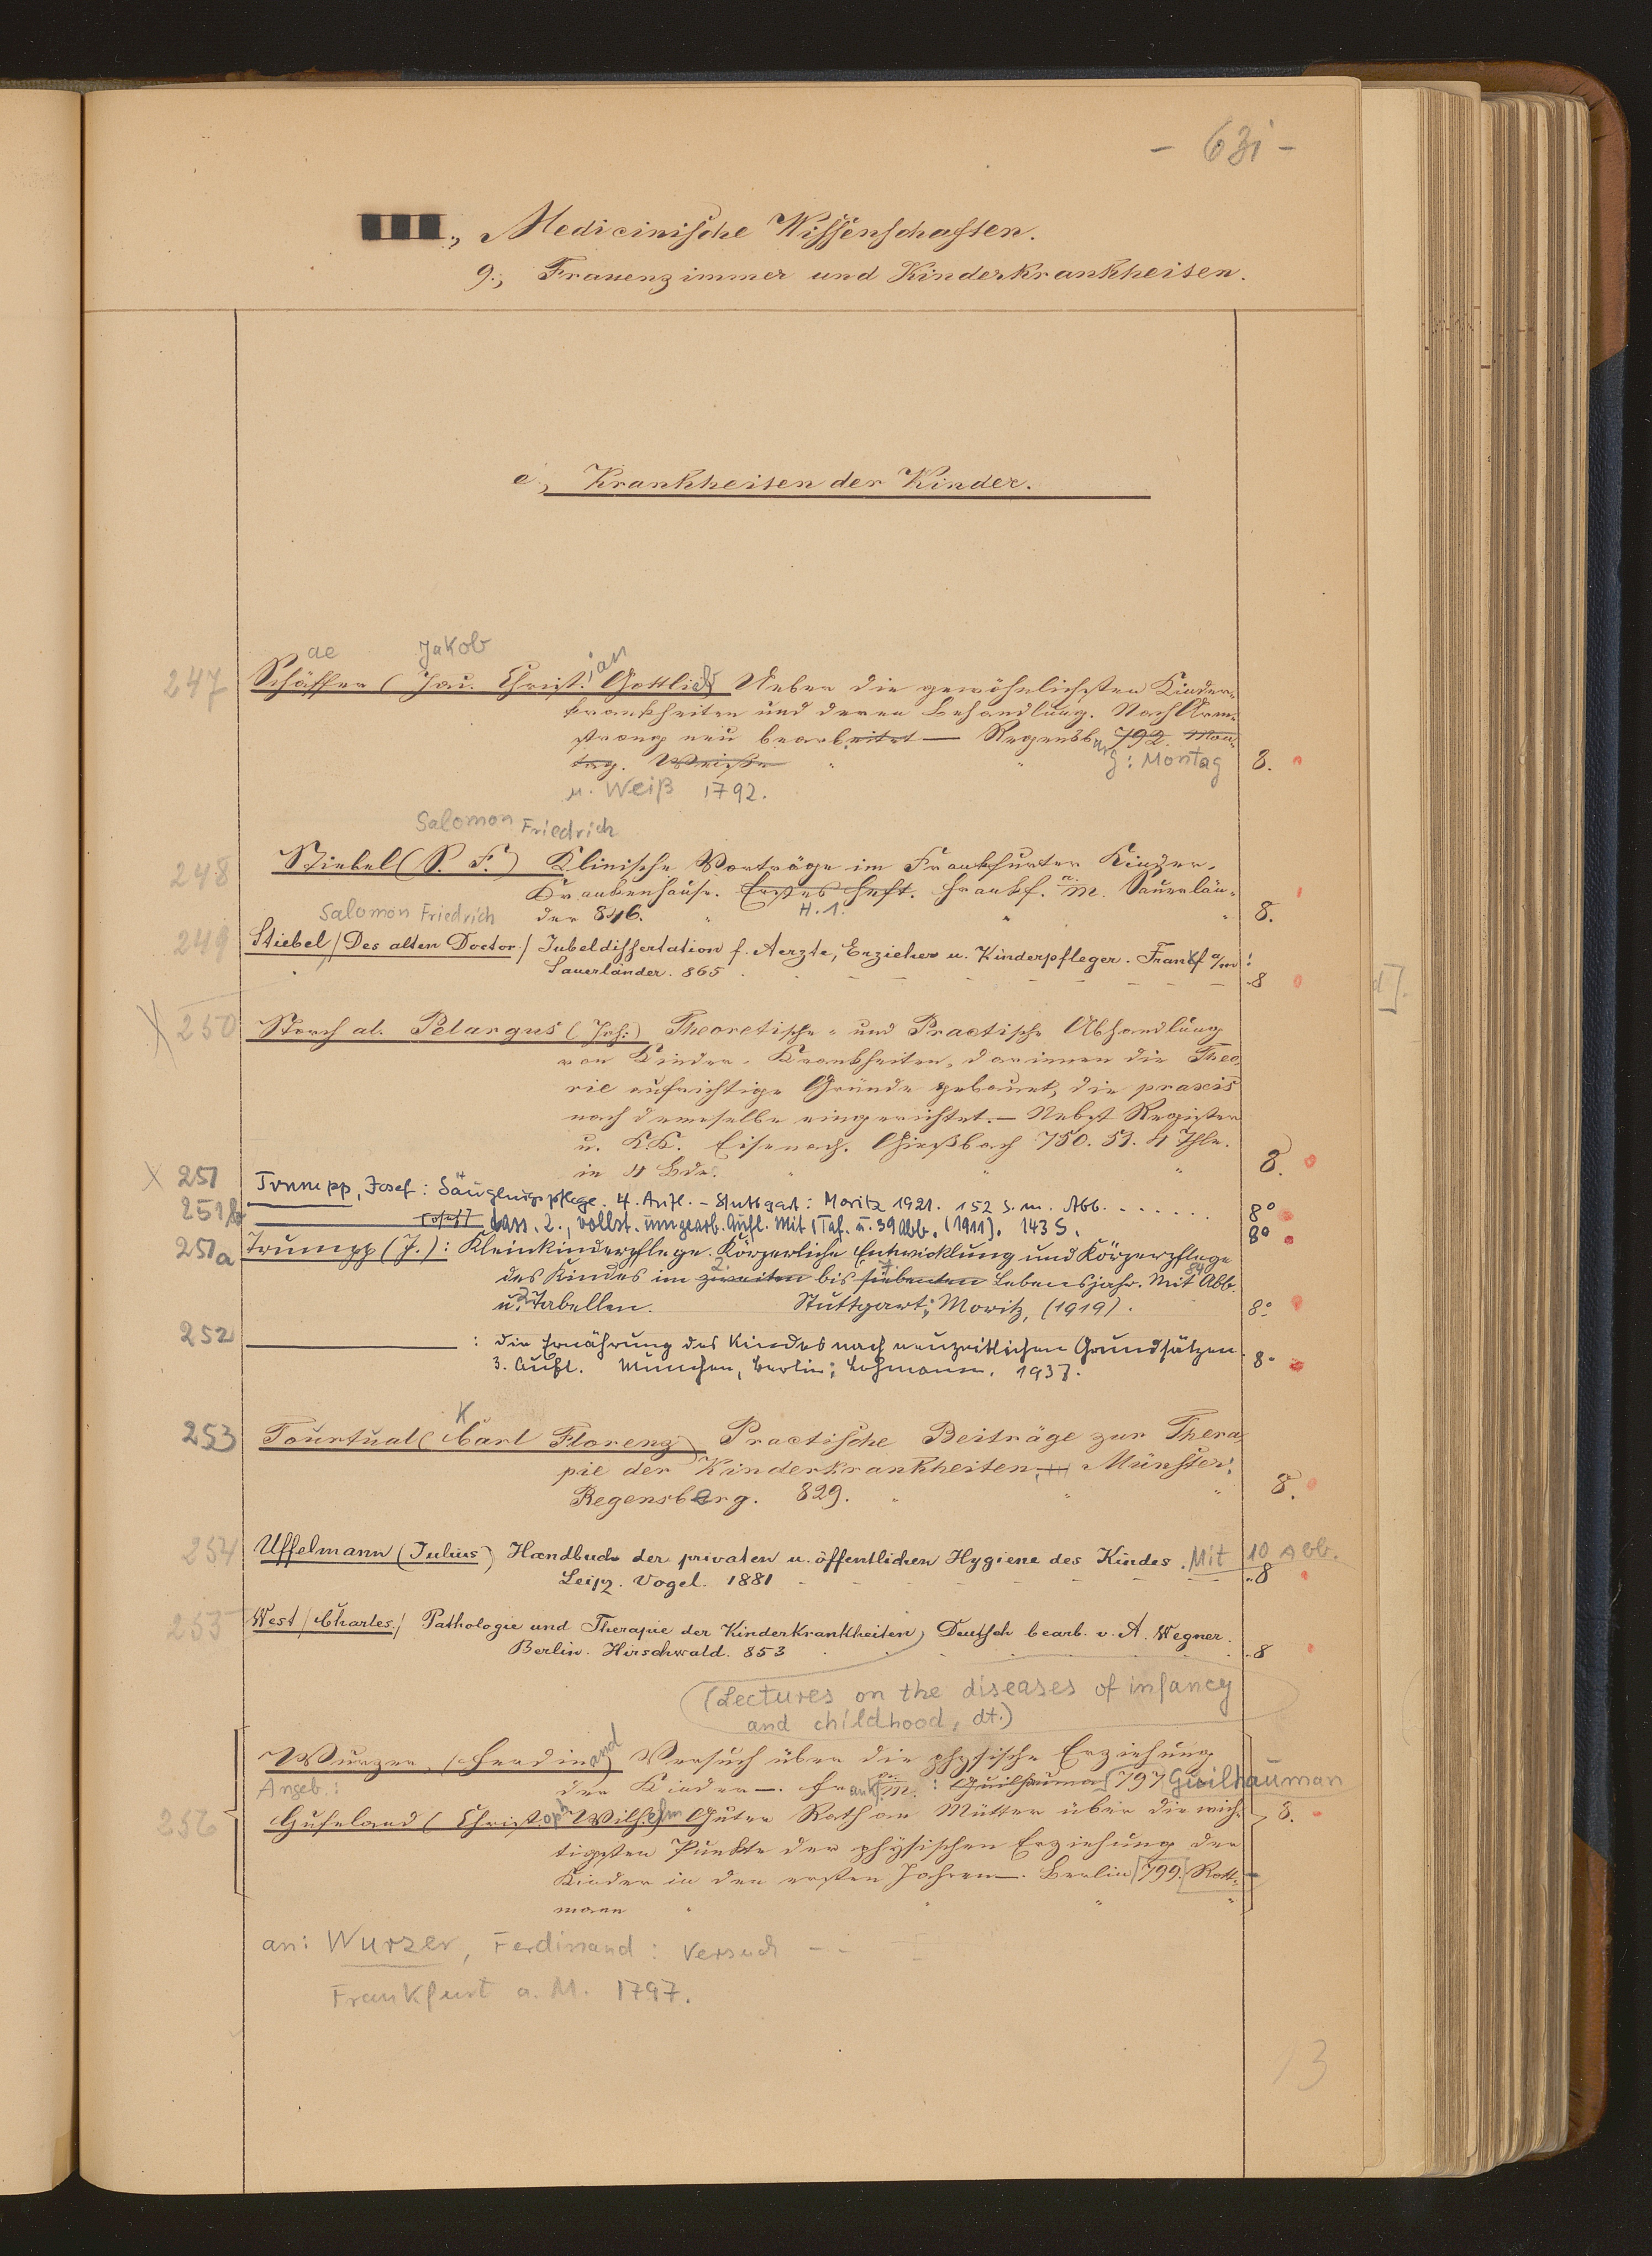 - 631 -
III., Medicinische Wissenschaften.
9., Frauenzimmer und Kinderkrankheiten.
e., Krankheiten der Kinder.
ae Jakob ian
247 Schäffer (Jac. Christ. Gottlieb) Ueber die gewöhnlichsten Kinder-
krankheiten und deren Behandlung. Nach Arm-
strong neu bearbeitet — Regensburg 792. Mon-
tag. Weiße " " : Montag 8.
u. Weiß 1792.
Salomon Friedrich
248 Stiebel (S. F.) Klinische Vorträge im Frankfurter Kinder-
Krankenhause. Erstes Heft. Frankf. a. M. Sauerlän-
der 846. " H. 1. " " 8.
Salomon Friedrich
249 Stiebel / Des alten Doctor / Jubeldissertation f. Aerzte, Erzieher u. Kinderpfleger. Frankf a/m :
Sauerländer. 865 8
X 250 Storch al. Pelargus (Joh:) Theoretische- und Practische Abhandlung
von Kinder-Krankheiten, darinnen die Theo-
rie aufrichtige Gründe gebauet, die praxis
nach demselben eingerichtet. — Nebst Register
u. K.K. Eisenach. Grießbach 750. 51. 4 Thle.
in 4 Bde. " " " 8.
X 251 Trumpp, Josef: Säuglingspflege. 4. Aufl. - Stuttgart: Moritz 1921. 152 S. m. Abb. . . . . . . . 8°
251b dass. 2., vollst. umgearb. Aufl. Mit 1 Taf. u. 39 Abb. (1911). 143 S. 8°
251a Trumpp (J.): Kleinkinderpflege. Körperliche Entwicklung und Körperpflege
des Kindes im zweiten 2. bis siebenten 7. Lebensjahr. Mit 54 Abb.
u. 2 Tabellen. Stuttgart: Moritz, (1919). 8°
252 : die Ernährung des Kindes nach neuzeitlichen Grundsätzen
3. Aufl. München, Berlin: Lehmann. 1937. 8°
K
253 Tourtual (Carl Florenz) Practische Beiträge zur Thera-
pie der Kinderkrankheiten. — Münster:
Regensberg. 829. " " " 8.
254 Uffelmann (Julius) Handbuch der privaten u. öffentlichen Hygiene des Kindes. Mit 10 Abb.
Leipz. Vogel. 1881 8
255 West / Charles / Pathologie und Therapie der Kinderkrankheiten, Deutsch bearb. v. A. Wegner.
Berlin. Hirschwald. 853 8
(Lectures on the diseases of infancy
and childhood, dt.)
Wurzer, (Ferdinand) Versuch über die physische Erziehung
Angeb.: der Kinder —. Frankf. a. M. : Guilhauman 797 Guilhauman
256 Hufeland (Christoph Wilhelm) Guter Rath an Mütter über die wich- 8.
tigsten Punkte der physischen Erziehung der
Kinder in den ersten Jahren —. Berlin 799. Rott-
mann " " " "
an: Wurzer, Ferdinand: Versuch - -
Frankfurt a. M. 1797.
13